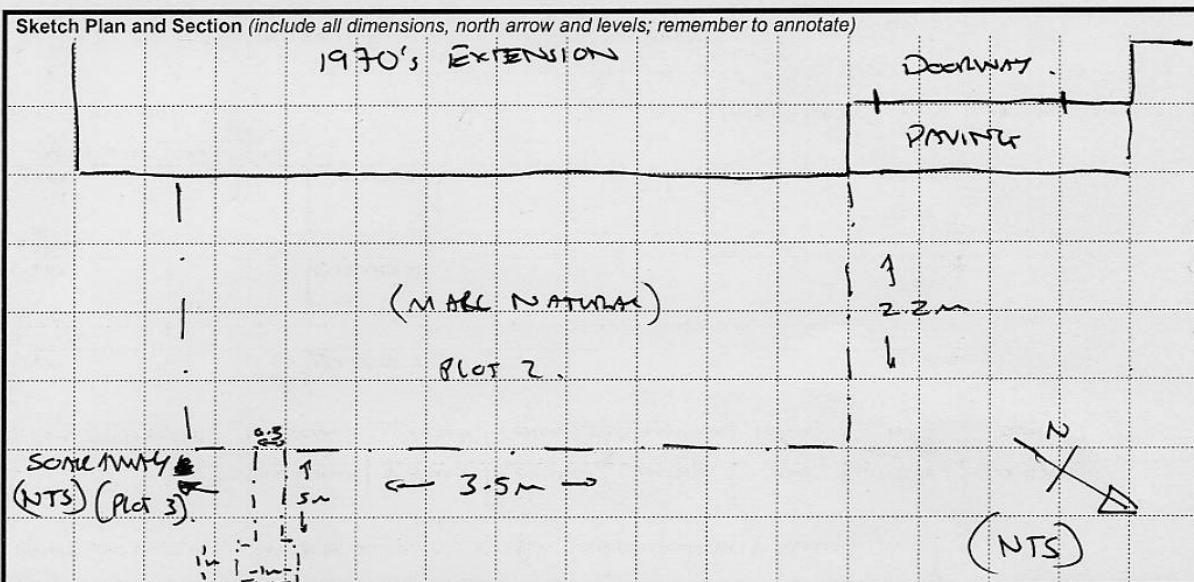 Sketch Plan and Section (include all dimensions, north arrow and levels; remember to annotate)
1970's EXTENSION
DOORWAY.
PAVING
(MARL NATURAL)
2.2m
PLOT 2.
0.3
N
SOAKAWAY
(NTS) (PLOT 3).
5m
3.5m
(NTS)
1m
1m